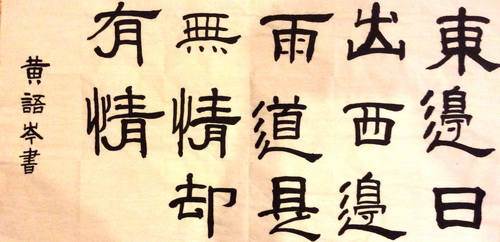 東邊日
出西邊
雨道是
無情却
有情
黃語岑書